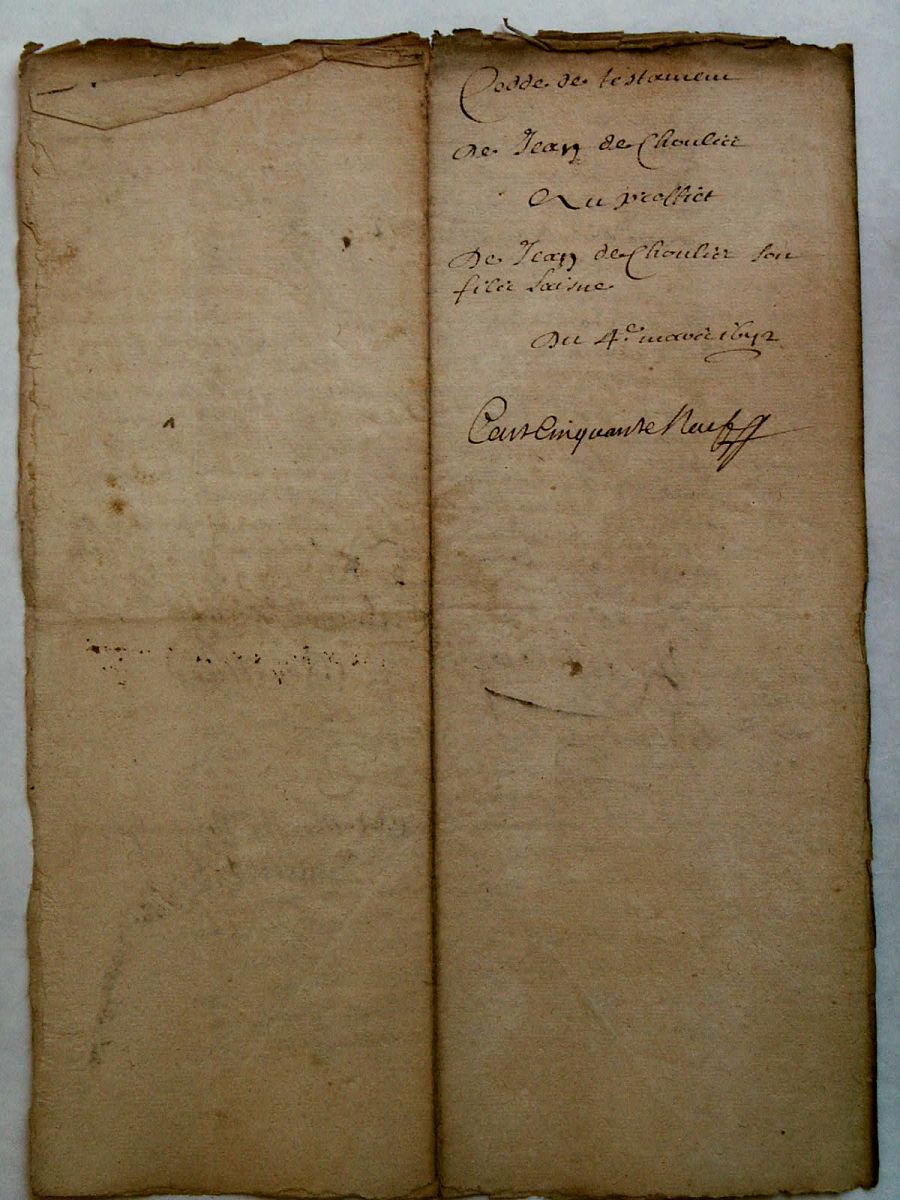 Codde de testament
de Jean de Choulier
Au proffict
de Jean de Choulier son
filz laisne
Du 4e mars
Cent Cinquante Neuf